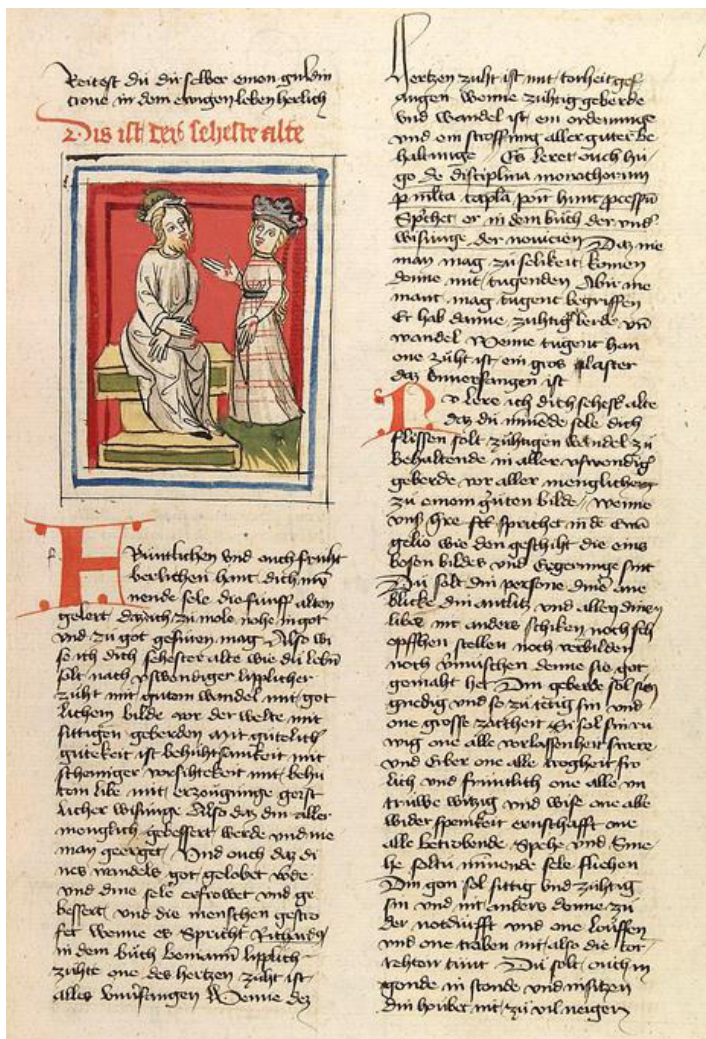 Reitest du dir selber einen guldin
crone in dem ewigen leben herlich
Dis ist der seheste alte
Früntlichen und ouch frucht
berlichen hant dich myn
nende sele die fünff alten
gelert
und zu got gefüren mag Also wi
se ich dich sehester alte wie du leben
solt nach uswendiger lipplicher
zuht mit gutem wandel mit got
lichem bilde vor der welte mit
sittigen geberden mit gütelich
gütekeit ist behuhtsamkeit mit
vorsihtekeit mit behu
tem libe mit erzougunge geist
licher wisunge Also daz din aller
menglich gebessert werde und nie
man geerget Und ouch daz di
nes wandels got gelobet werde
und dine sele erfrowet und ge
bessert und die menschen gestro
fet Wenne es spricht Richardus
in dem buch lipplich
zuhte one des hertzen zuht ist
alles Wenne des
hertzen zuht ist mit torheit gef
angen wenne zuhtig geberde
und wandel ist ein ordenunge
und ein stroffung aller guter be
haltunge Es leret ouch hu
go de disciplina monachorum
Sprichet er in dem buch der und
wisunge der novicien Daz nie
man mag zu selikeit komen
denne mit tugenden Abir nie
mant mag tugent begriffen
Er hab danne zuhtig berde un
wandel Wenne tugent han
one zuht ist ein gros laster
daz unverfangen ist
Nu lere ich dich sehest alte
daz du minnende sele dich
flissen solt zuhtigen wandel zu
behaltende in aller uswendig
geberde vor aller menglichem
zu einem guten bilde wenne
unser sprichet in de Ewan
gelio we den geschiht die eins
bosen bildes und ergerunge sint
Du solt din persone dine ane
blicke din antlitz und allen dinen
libes nit anders schiken noch sch
opffhen stellen noch verbilden
noch vermischen denne sie got
gemaht het Din geberde sol sin
gnedig und so zu tetig sin und
one grosse zartheit Si sol sin ru
wig one alle verlassenheit swere
und one alle tragheit fro
lich und früntlich one alle un
truwe witzig und wise one alle
widerspenikeit ernschafft one
alle betrobende Spehe und Sme
he soltu minnende sele fliehen
Din gon sol sittig und zuhtig
sin und nit anders denne zu
der notdurfft und one louffen
und one traben nit also die tor
rehten tunt Du solt ouch in
gonde in stonde und in sitzen
din houbet nit zu vil neigen